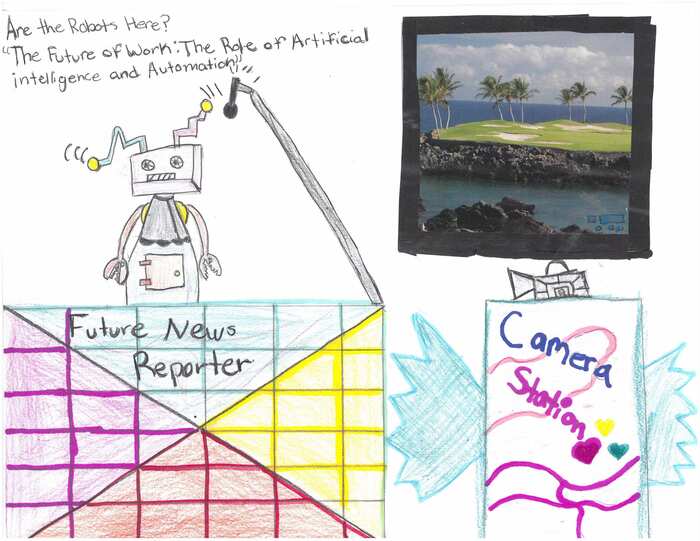 Are the Robots Here?
"The Future of Work: The Role of Artificial
intelligence and Automation"
Future News
Reporter
Camera
Station